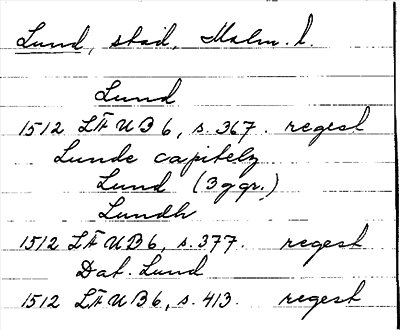 Lund, stad, Malm. l.
Lund
1512 LÄUB 6, s. 367. regest
Lunde capitely
Lund (3ggr.)
Lundh
1512 LÄUB 6, s. 377. regest
Dat. Lund
1512 LÄUB 6, s. 413. regest